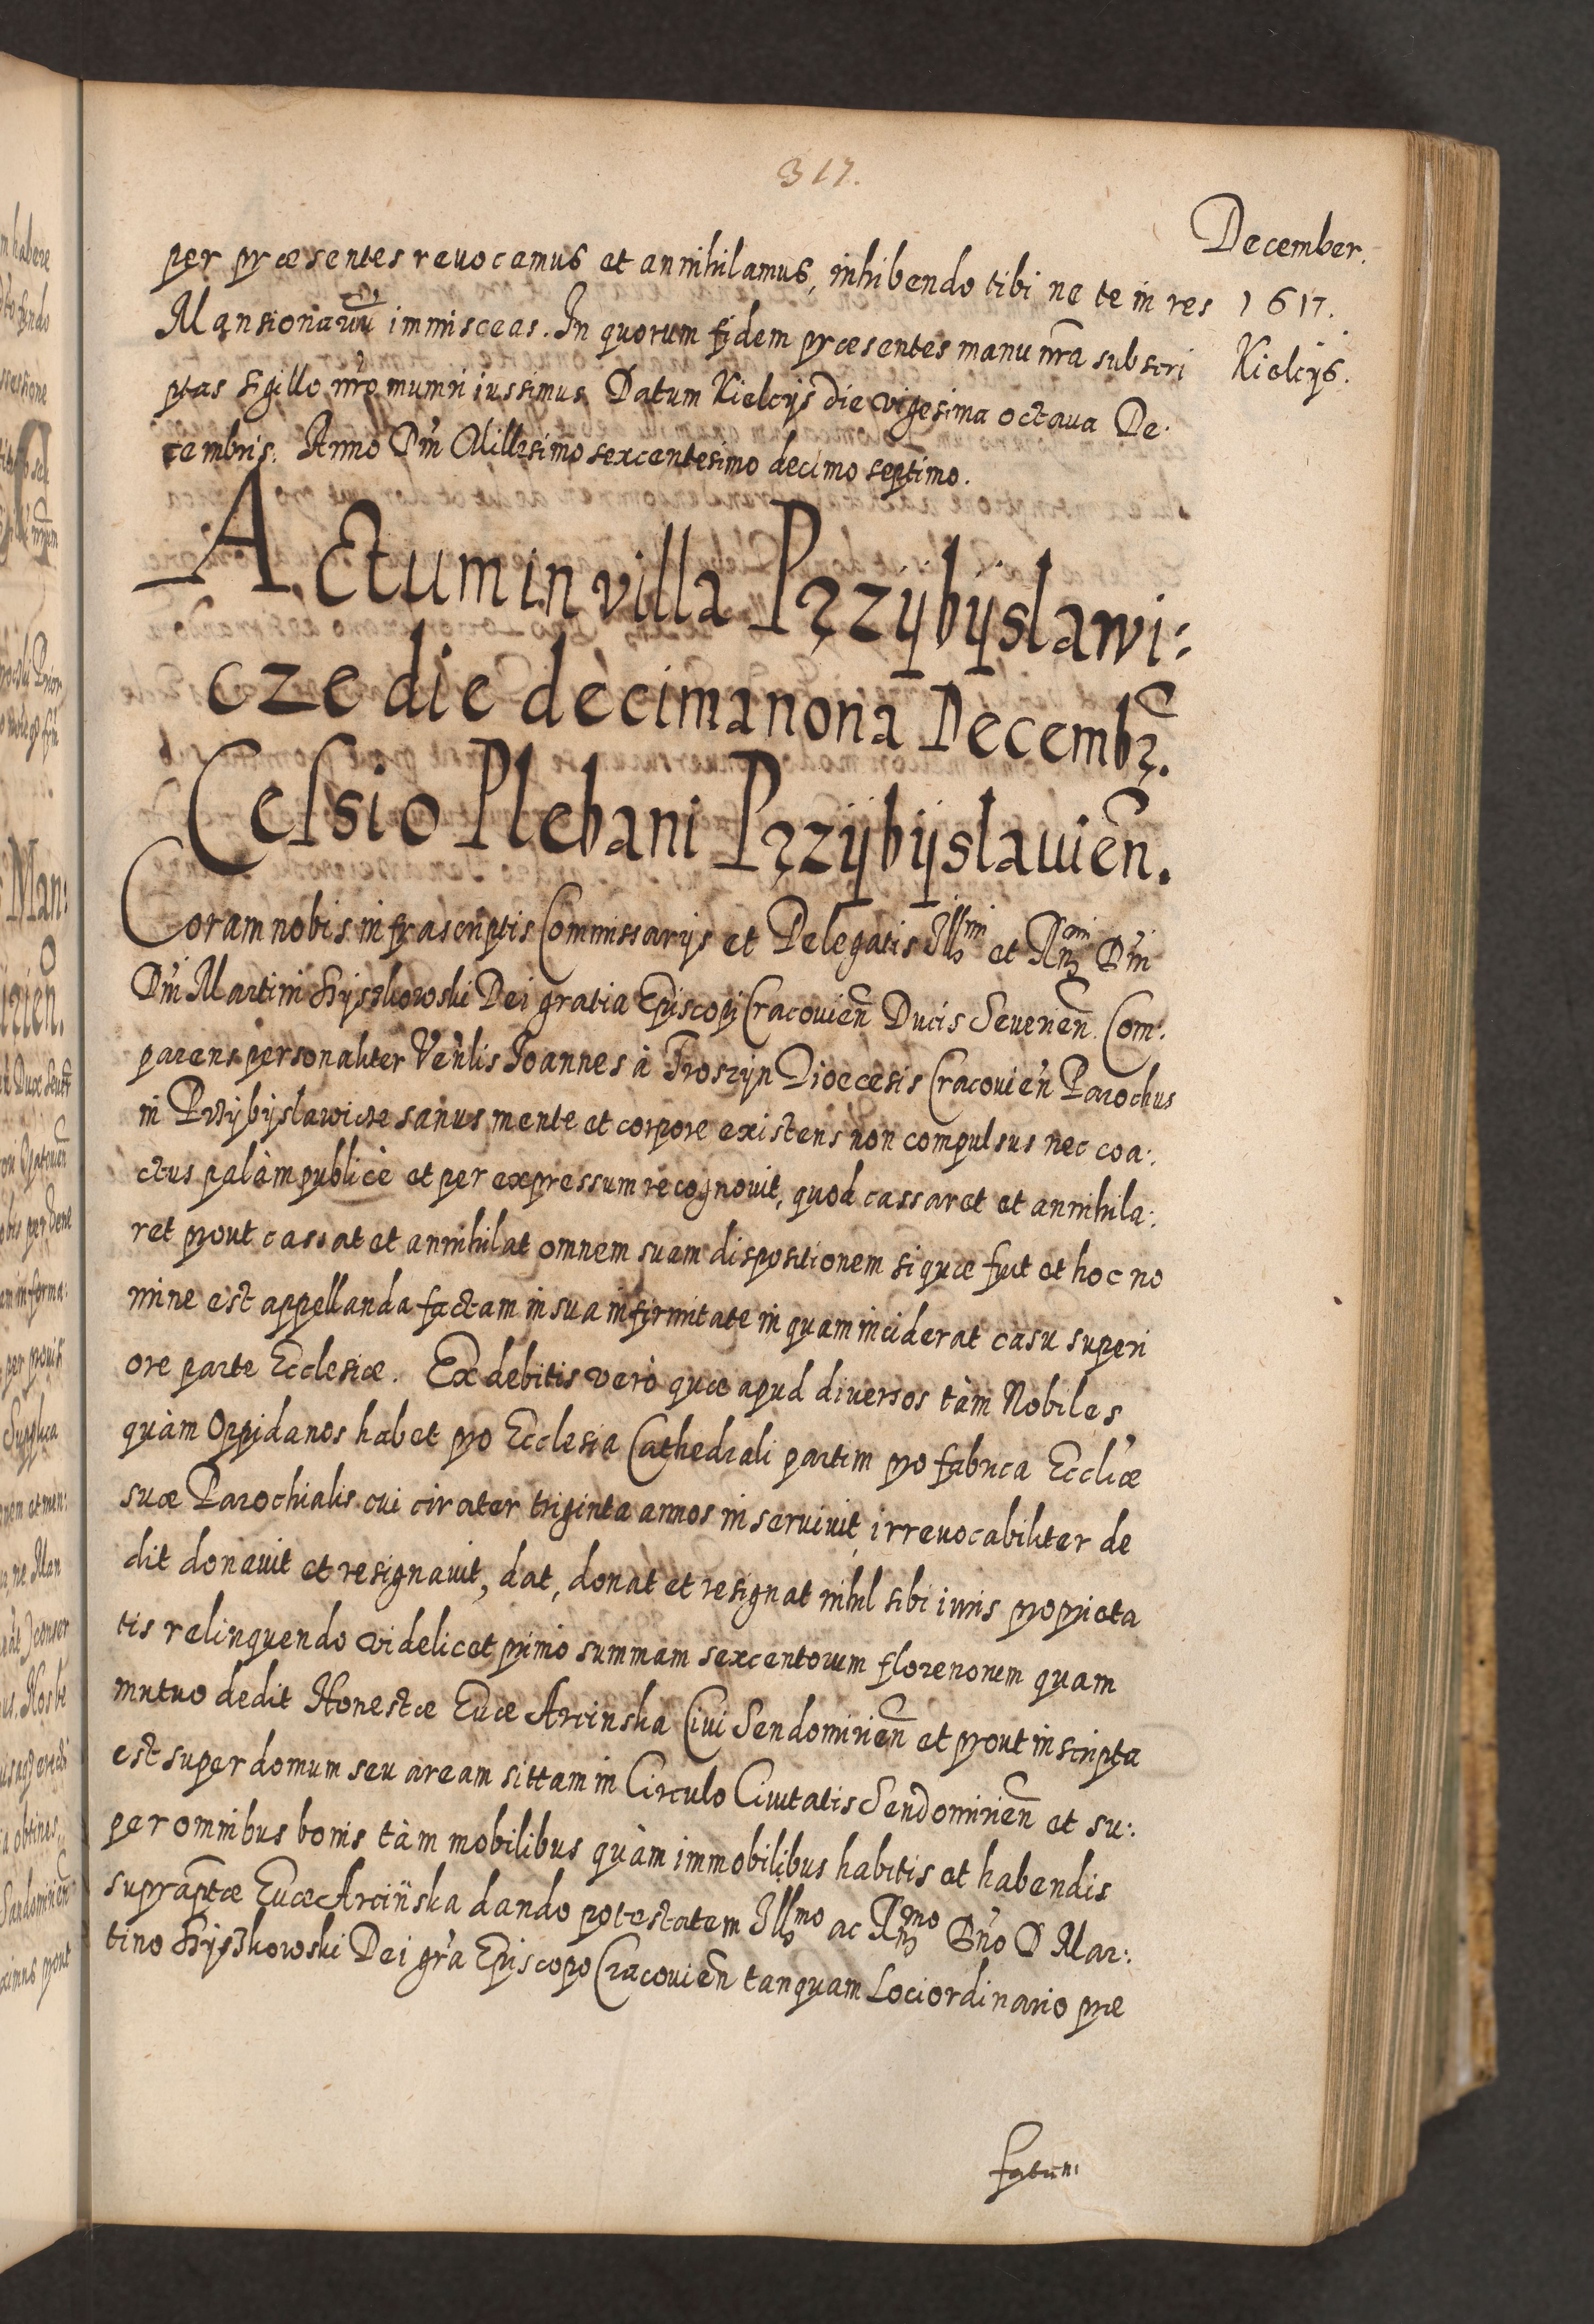 317.
December.
1617.
Kielcijs.
per præsentes reuocamus et annihilamus, inhibendo tibi ne te in res
Mansionariũ immisceas. In quorum fidem præsentes manu nr̃a subscri
ptas sigillo nr̃o muniri iussimus Datum Kielcijs die vigesima octaua De:
cembris. Anno Dn̄i Millesimo sexcentesimo decimo septimo.
Actum in villa Przÿbÿslawi:
cze die decimanona Decembr̃.
Cessio Plebani Przÿbÿslauien̄.
Coram nobis infrascriptis Commissarijs et Delegatis Illmi et Rmi Dn̄i
Dn̄i Martini Szyszkowski Dei gratia Episcopi Cracouien̄ Ducis Seuerien̄. Com:
parens personaliter Ven̄lis Joannes à Troszyn Dioecesis Cracouien̄ Parochus
in Przÿbÿslawicze sanus mente et corpore existens non compulsus nec coa:
ctus palàm publicè et per expressum recognouit, quod cassaret et annihila:
ret prout cassat et annihilat omnem suam dispositionem si quæ fuit et hoc no
mine est appellanda factam in sua infirmitate in quam inciderat casu superi
ore parte Ecclesiæ. Ex debitis verò quæ apud diuersos tàm Nobiles
quàm Oppidanos habet pro Ecclesia Cathedrali partim pro fabrica Eccliæ
suæ Parochialis cui circiter triginta annos inseruiuit irreuocabiliter de
dit donauit et resignauit, dat, donat et resignat nihil sibi iuris proprieta
tis relinquendo videlicet primò summam sexcentorum florenorum quam
mutuo dedit Honestæ Euæ Arcinska Ciui Sendomirien̄ et prout inscripta
est super domum seu aream sittam in Circulo Ciuitatis Sendomirien̄ et su:
per omnibus bonis tàm mobilibus quàm immobilibus habitis et habendis
supraptæ Euæ Arcinska dando potestatem Illmo ac Rmo Dn̄o D Mar:
tino Szyszkowski Dei gr̃a Episcopo Cracouien̄ tanquam Loci ordinario præ
fatum